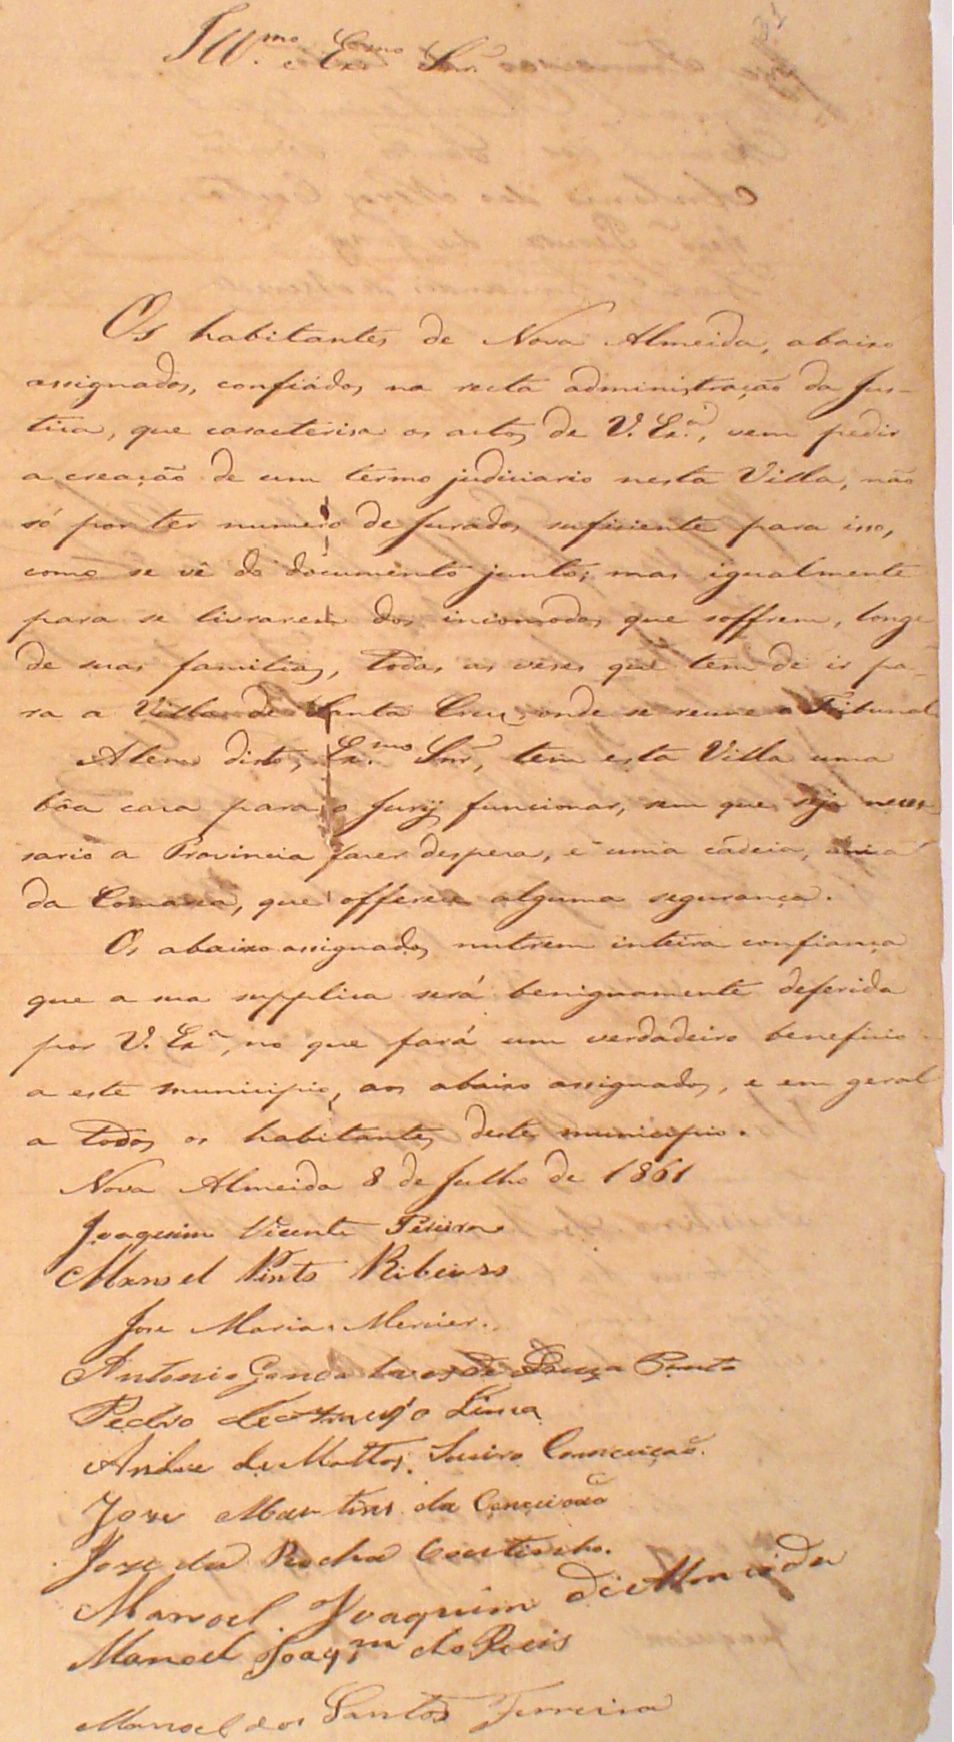 Ill.mo e Exmo Snr.
Os habitantes de Nova Almeida, abaixo
assignados, confiádos na recta administração da Jus-
tica, que caracterisa os actos de V. Ex.ª, vem pedir
a creação de um termo judiciario nesta Villa, não
só por ter numero de Jurados suficiente para isso,
como se vê do documento junto; mas igualmente
para se livrarem dos incomodos que soffrem, longe
de suas familias, todas as veses que tem de ir pa-
ra a Villa de Santa Cruz, onde se reune o Tribunal
Alem disto, Ex.mo Snr, tem esta Villa uma
bôa casa para o Jury funcionar, sem que seja neces-
sario a Provincia fazer despesa, e uma cadeia, unica
da Comarca, que offerece alguma segurança.
Os abaixo assignados nutrem inteira confiança
que a sua supplica será benignamente deferida
por V. Exª, no que fará um verdadeiro beneficio
a este municipio, aos abaixo assignados, e em geral
a todos os habitantes deste municipio.
Nova Almeida 8 de Julho de 1861
Joaquim Vicente Pereira
Manoel Pinto Ribeiro
Jose Maria Mercier.
Antonio Goncalves de Souza Pinto
Pedro de Araujo Lima
Andre de Mattos Conceição.
Jose Martins da Conceicão
Joze da Rocha Coutinho.
Manoel Joaquim de Almeida
Manoel Joaqm do Reis
Manoel dos Santos Ferreira